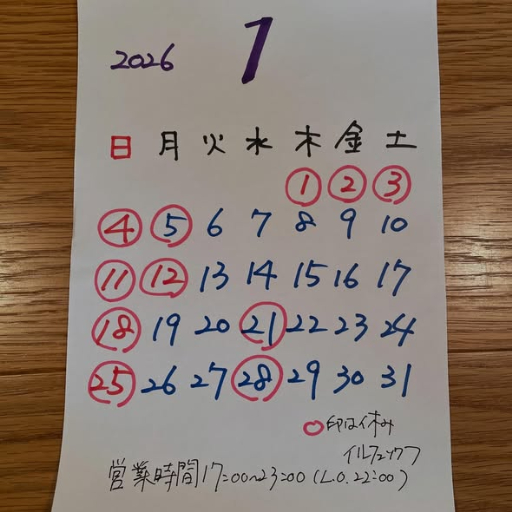 2026 1
日 月 火 水 木 金 土
1 2 3
4 5 6 7 8 9 10
11 12 13 14 15 16 17
18 19 20 21 22 23 24
25 26 27 28 29 30 31
○印は休み
イルフェックフ
営業時間17:00~23:00(L.O.22:00)